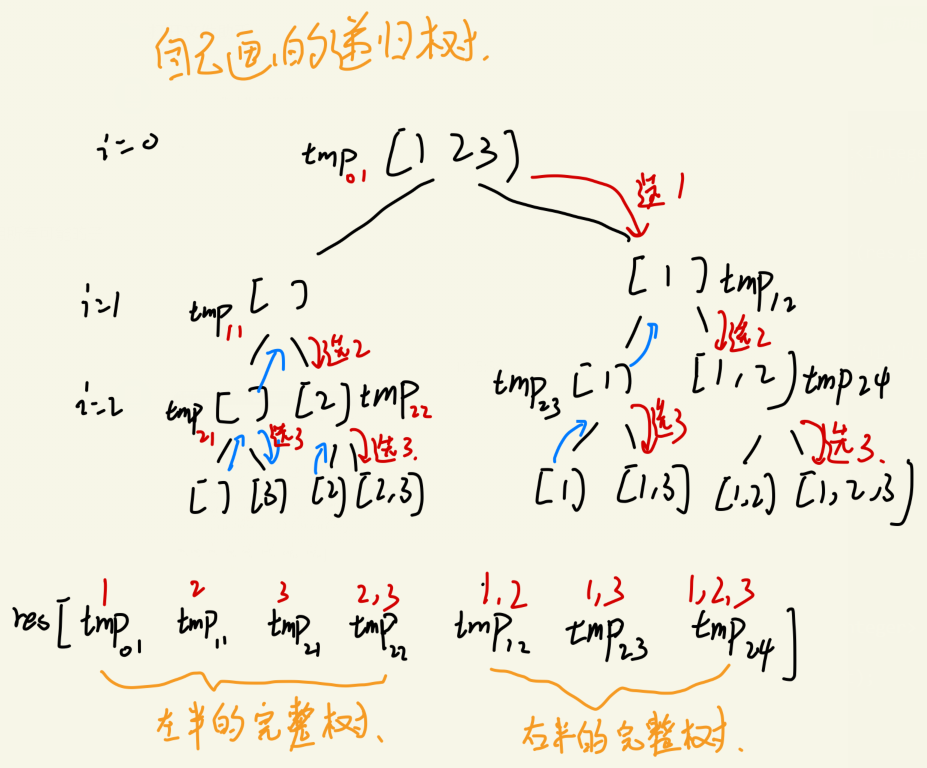 自己画的递归树.
i=0 tmp01 [1 2 3]
选1
i=1 tmp11 [ ] [1] tmp12
选2 选2
i=2 tmp21 [ ] [2] tmp22 tmp23 [1] [1,2] tmp24
选3 选3. 选3 选3.
[ ] [3] [2] [2,3] [1] [1,3] [1,2] [1,2,3]
1 2 3 2,3 1,2 1,3 1,2,3
res [tmp01 tmp11 tmp21 tmp22 tmp12 tmp23 tmp24]
左半的完整树、 右半的完整树.